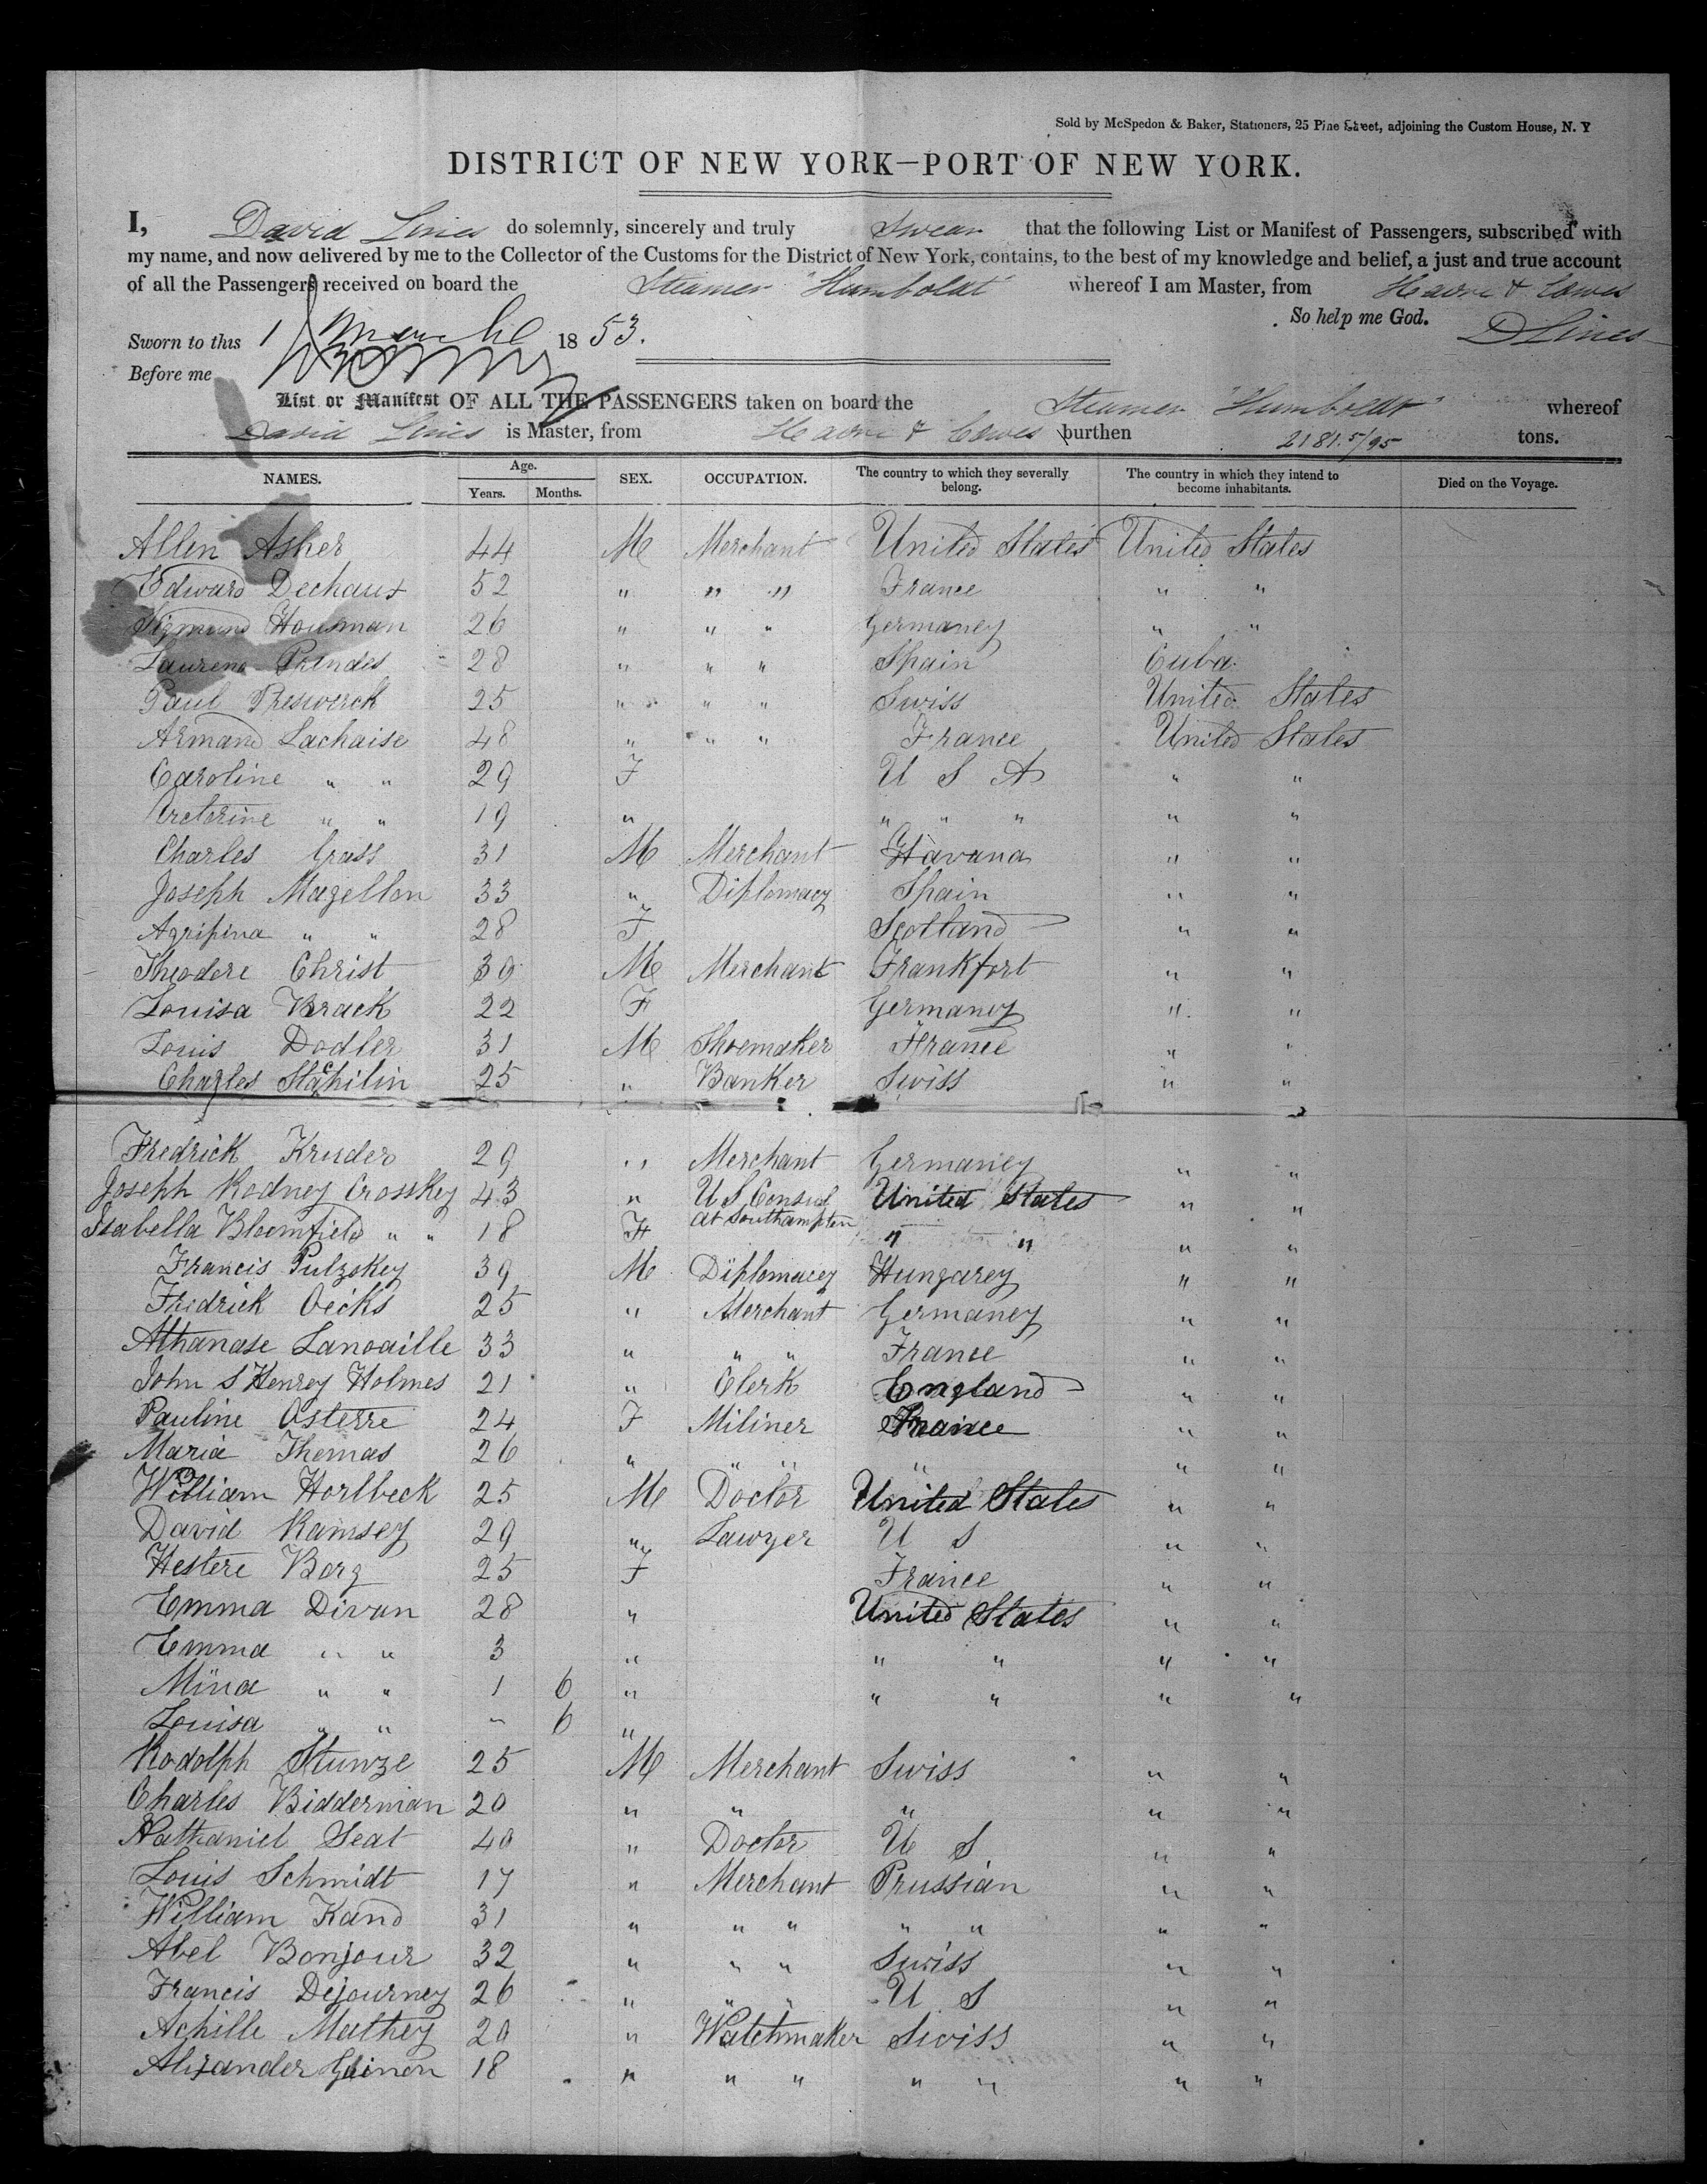 Sold by McSpedon & Baker, Stationers, 25 Pine Street, adjoining the Custom House, N. Y
DISTRICT OF NEW YORK—PORT OF NEW YORK.
I, David Lines do solemnly, sincerely and truly Swear that the following List or Manifest of Passengers, subscribed with
my name, and now delivered by me to the Collector of the Customs for the District of New York, contains, to the best of my knowledge and belief, a just and true account
of all the Passengers received on board the Steamer "Humboldt" whereof I am Master, from Havre & Cowes
So help me God. D Lines
Sworn to this 1 March 1853.
Before me
List or Manifest OF ALL THE PASSENGERS taken on board the Steamer "Humboldt" whereof
David Lines is Master, from Havre & Cowes burthen 2181.5/95 tons.
NAMES. Age. Years. Months. SEX. OCCUPATION. The country to which they severally belong. The country in which they intend to become inhabitants. Died on the Voyage.
Allen Asher 44 M Merchant United States United States
Edward Dechaux 52 " " " France " "
Sigmund Housman 26 " " " Germaney " "
Laurens Prendes 28 " " " Spain Cuba
Paul Preswerck 25 " " " Swiss United States
Armand Lachaise 48 " " " France United States
Caroline " " 29 F U S A " "
" " 19 " " " " " "
Charles Grass 31 M Merchant Havana " "
Joseph Magellon 33 " Diplomacy Spain " "
Agripina " " 28 F Scotland " "
Theodore Christ 30 M Merchant Frankfort " "
Louisa Brack 22 F Germany " "
Louis Dodler 31 M Shoemaker France " "
Charles Stachilin 25 " Banker Swiss " "
Fredrick Kruder 29 " Merchant Germaney " "
Joseph Rodney Crosskey 43 " U S Consul United States " "
Isabella Bloomfield " " 18 F at Southampton " " " "
Francis Pulzskey 39 M Diplomacey Hungarey " "
Fredrick Oecks 25 " Merchant Germaney " "
Athanase Lanoaille 33 " " " France " "
John S Henrey Holmes 21 " Clerk England " "
Pauline Osterre 24 F Miliner France " "
Maria Thomas 26 " " " " " "
William Horlbeck 25 M Doctor United States " "
David Ramsey 29 " Lawyer U S " "
Hestere Borg 25 F France " "
Emma Divan 28 " United States " "
Emma " " 3 " " " " "
Mina " " 1 6 " " " " "
Louisa " " - 6 "
Rodolph Stunze 25 M Merchant Swiss " "
Charles Bidderman 20 " " " " "
Nathaniel Seat 40 " Doctor U S " "
Louis Schmidt 17 " Merchant Prussian " "
William Kand 31 " " " " " " "
Abel Bonjour 32 " " " Swiss " "
Francis Dejourney 26 " " " U S " "
Achille Mathey 20 " Watchmaker Swiss " "
Alixander Guinon 18 " " " " " " "